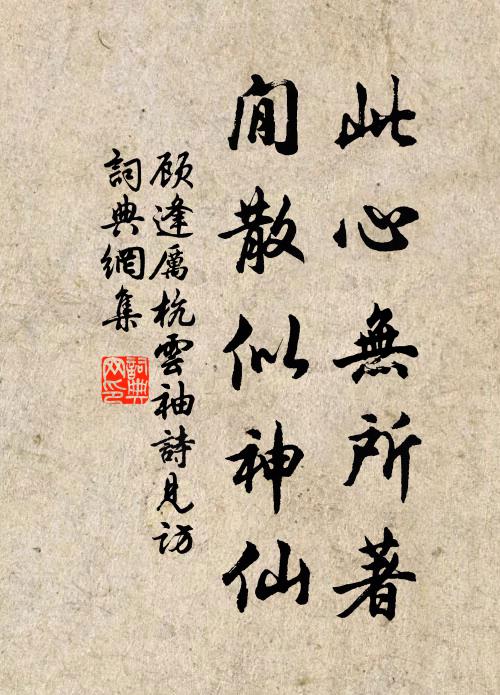 此心無所著
閒散似神仙
顾逢厲杭雲袖詩見访
詞典網集
詞典网印